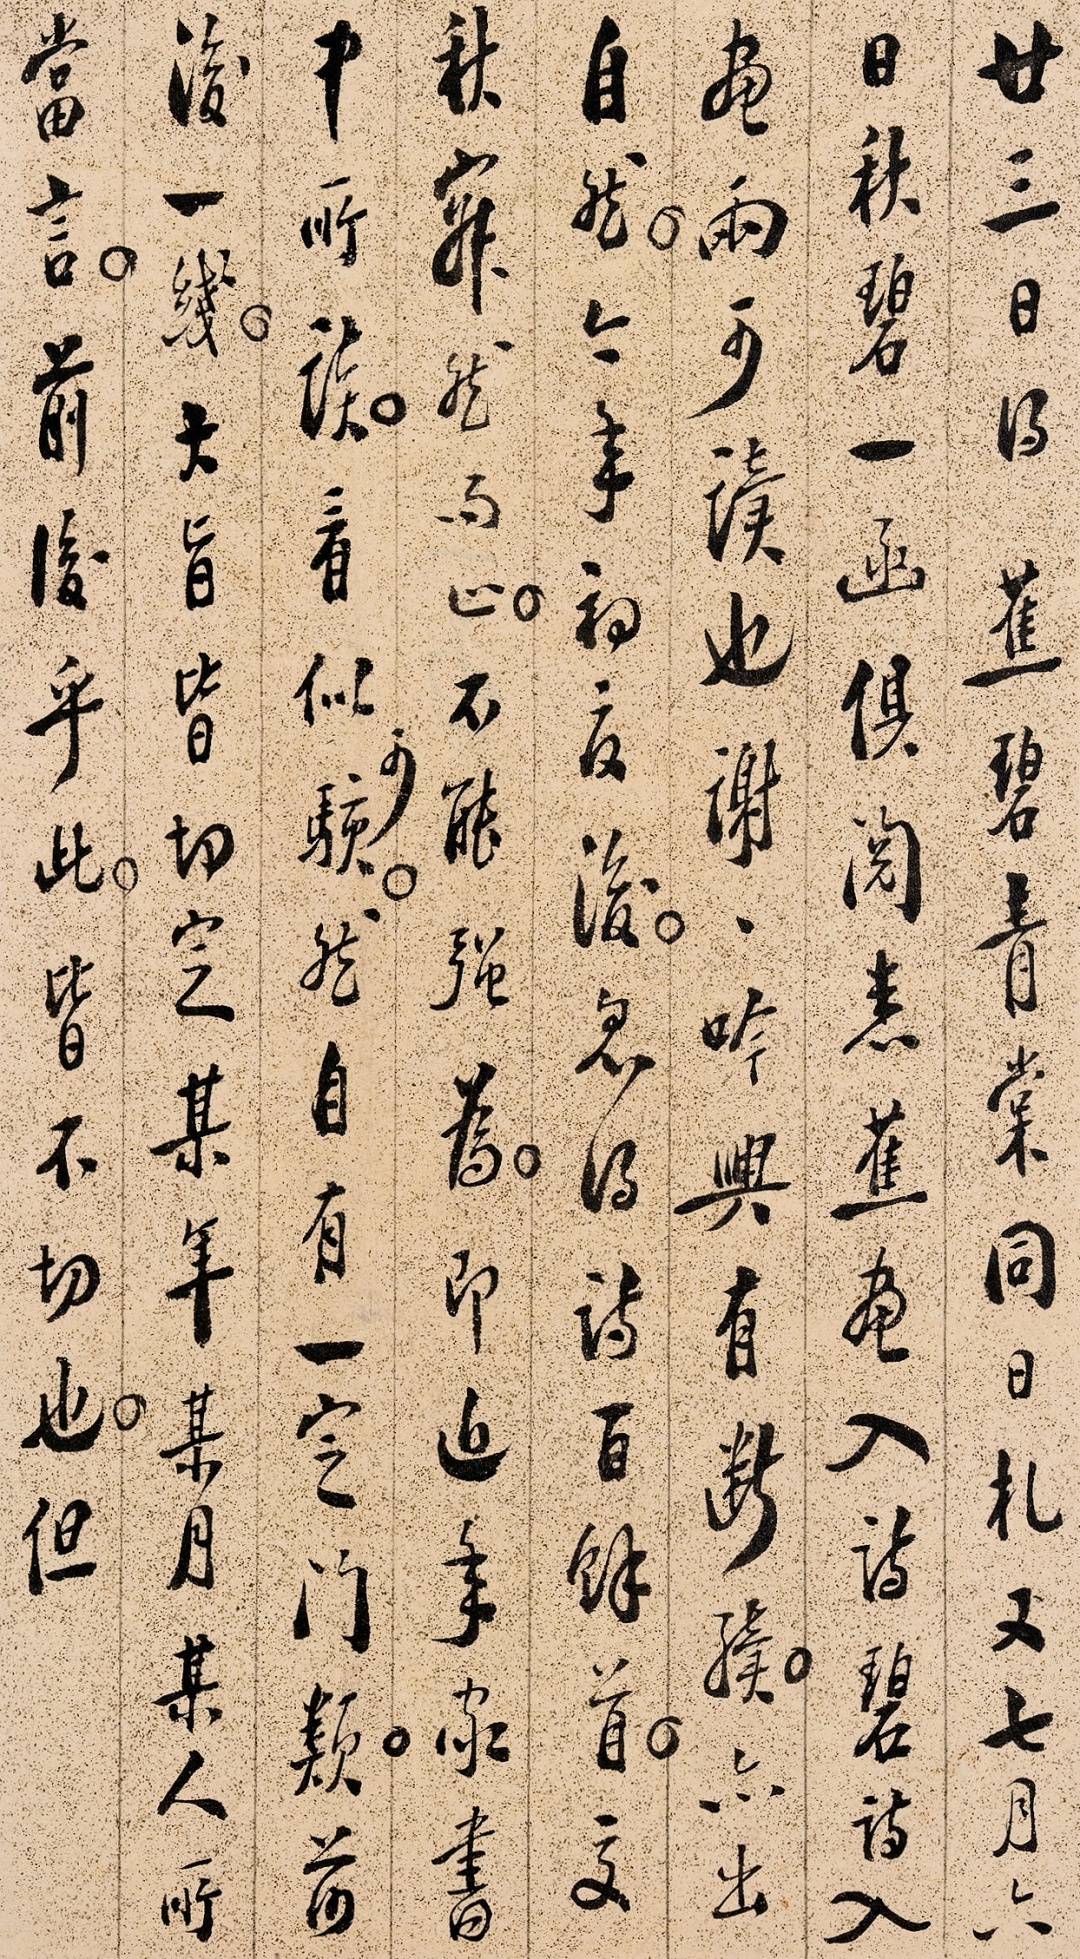 廿三日得蕉碧青棠同日札又七月六
日秋碧一函俱阅悉蕉画入詩碧詩入
画兩可讀也謝、吟興有斷續六出
自然今年初度後忽得詩百餘首交
秋寂然而止不能强為即近年家書
中所談看似可驗然自有一定門類前
後一幾大旨皆切定某年某月某人所
當言前後乎此皆不切也但